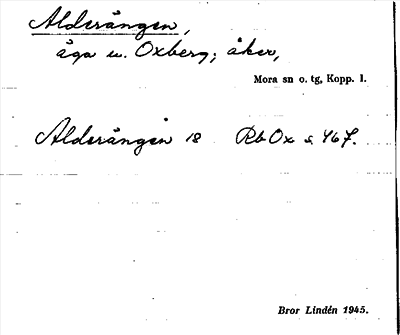 Alderängen,
äga u. Oxberg; åker,
Mora sn o. tg, Kopp. l.
Alderängen 18 Rb Ox s. 467.
Bror Lindén 1945.